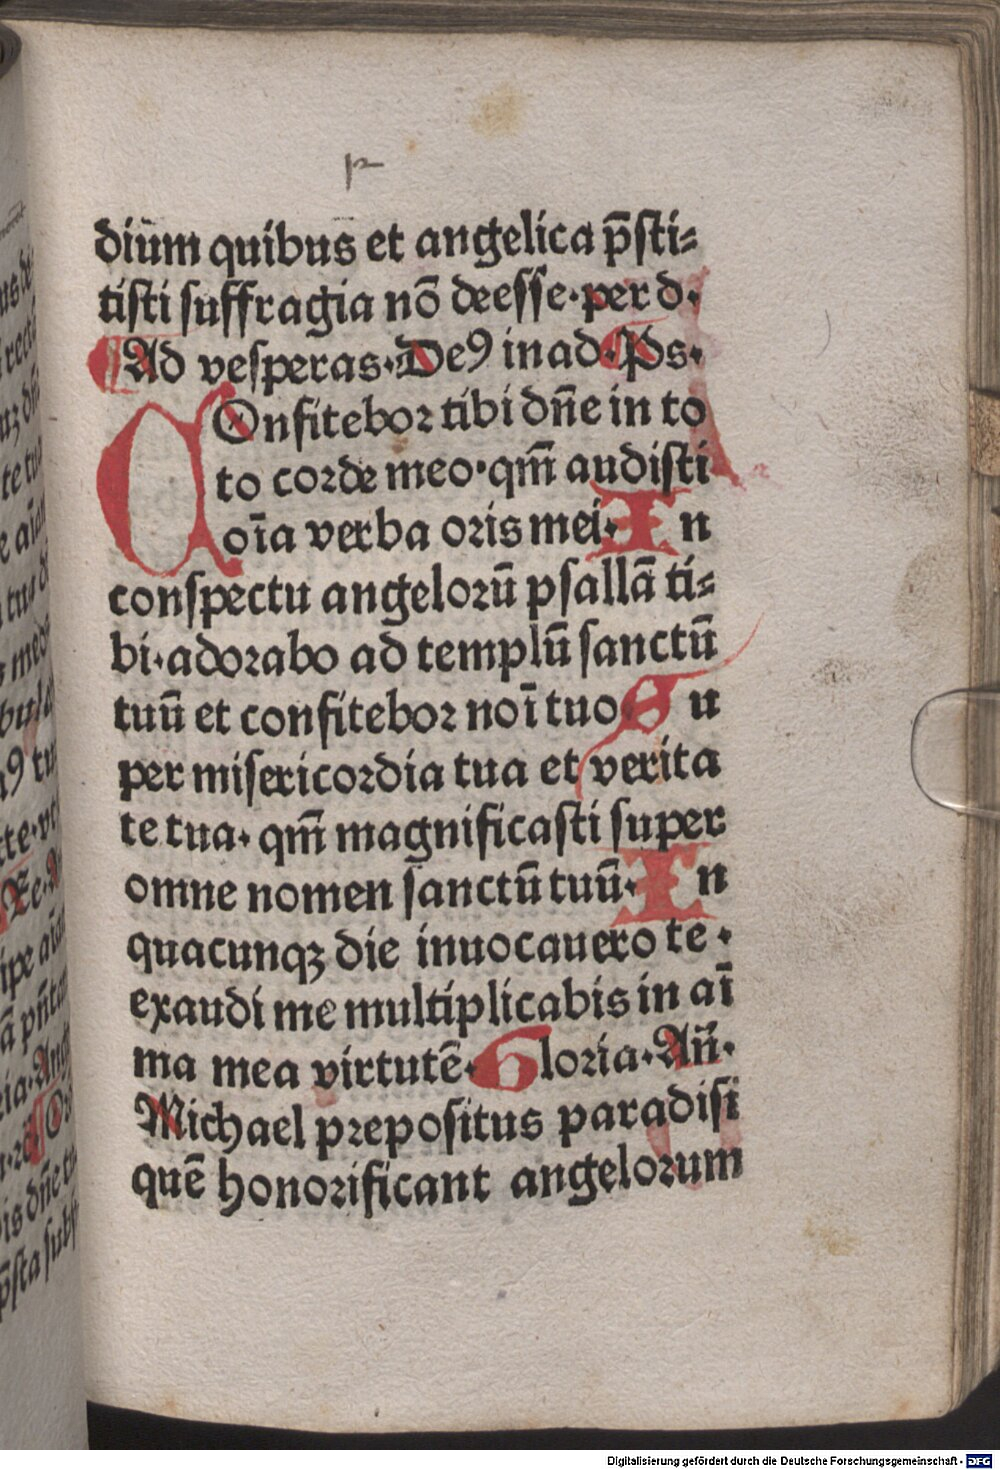 diūm quibus et angelica p̄sti-
tisti suffragia nō deesse·per d·
Ad vesperas·De9 in ad·Ps·
COnfitebor tibi dn̄e in to
to corde meo·qm̄ audisti
oīa verba oris mei·In
conspectu angelorū psallā ti-
bi·adorabo ad templū sanctū
tuū et confitebor noī tuo Su
per misericordia tua et verita
te tua·qm̄ magnificasti super
omne nomen sanctū tuū·In
quacunqꝫ die inuocauero te·
exaudi me multiplicabis in aī
ma mea virtutē·Gloria·Añ·
Michael prepositus paradisi
quē honorificant angelorum
Digitalisierung gefördert durch die Deutsche Forschungsgemeinschaft - DFG